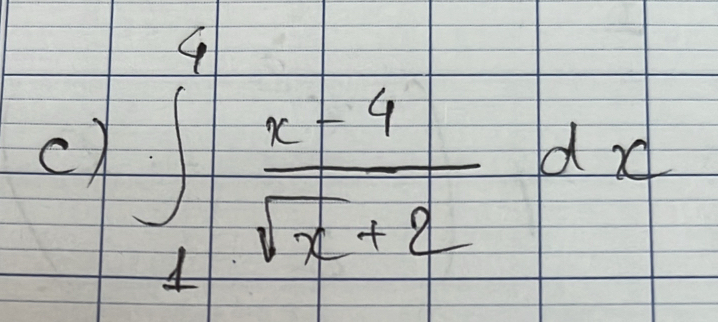 c) ∫₁⁴ (x - 4)/(√x + 2) dx